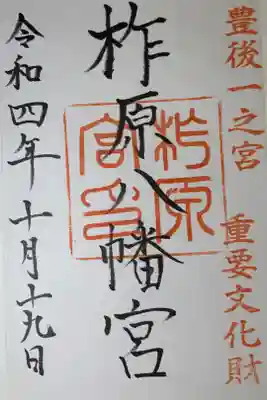 豊後一之宮 重要文化財
柞原八幡宮
令和四年十月十九日